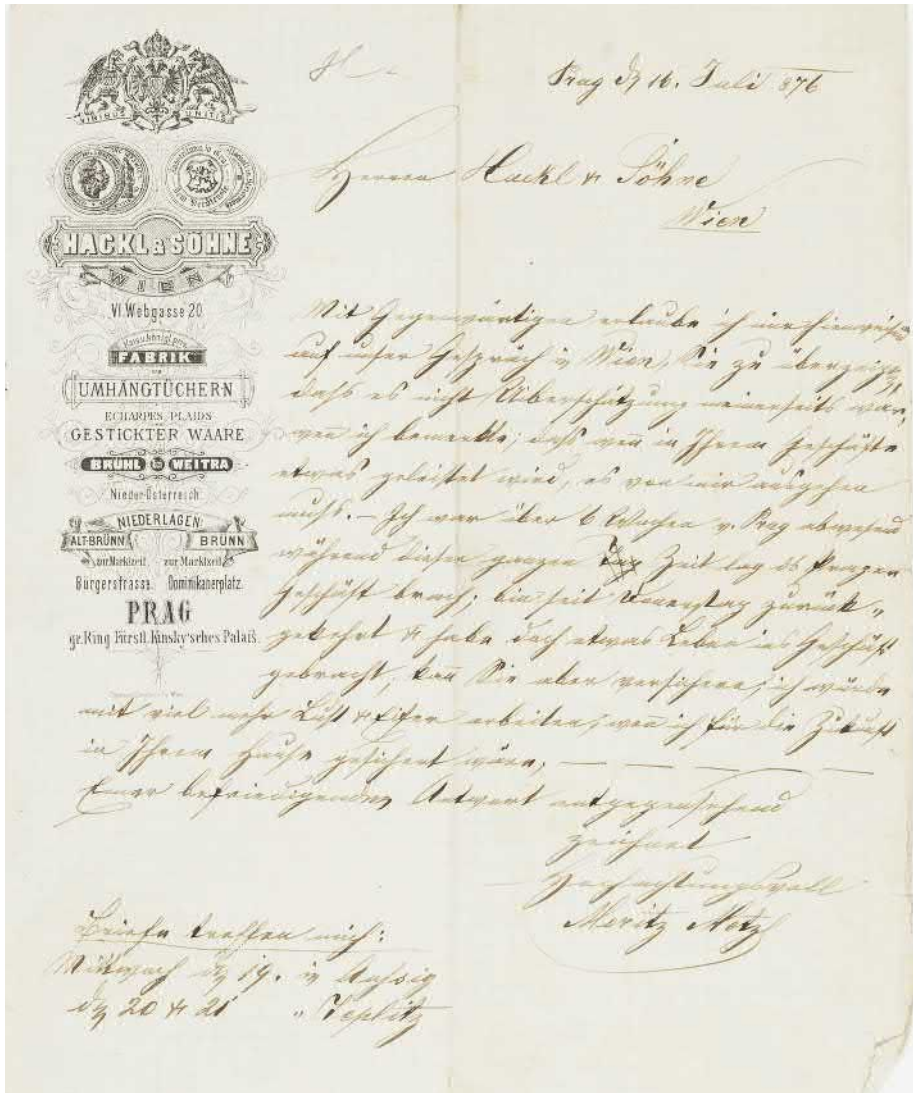 VIRIBUS UNITIS
HACKL & SÖHNE
WIEN
VI. Webgasse 20
FABRIK
VON
UMHÄNGTÜCHERN
ECHARPES, PLAIDS
GESTICKTER WAARE
BRÜHL BEI WEITRA
Nieder-Österreich
NIEDERLAGEN:
ALT-BRÜNN BRÜNN
zur Marktzeit zur Marktzeit
Bürgerstrasse. Dominikanerplatz.
PRAG
gr. Ring Fürstl. Kinsky'sches Palais.
Prag d. 16. Juli 876
Herren Hackl & Söhne
Wien
Mit Gegenwärtigen erlaube ich mir hinweisend
auf unser Gespräch in Wien, Sie zu überzeigen,
dass es nicht Uiberschätzung meinerseits war,
wen ich bemerkte; dass wen in Ihrem Geschäfte
etwas geleistet wird, es von mir ausgehen
muss. – Ich war über 6 Wochen v. Prag abwesend
während dieser ganzen Zeit lag ds Prager
Geschäft brach; bin seit Donnerstag zurück-
gekehrt & habe doch etwas Leben ins Geschäft
gebracht, kan Sie aber versichern, ich würde
mit viel mehr Lust & Eifer arbeiten, wen ich für die Zukunft
in Ihrem Hause gesichert wäre, –
Einer befriedigenden Antwort entgegensehend
zeichnet
Hochachtungsvoll
Moritz Motzl
Briefe treffen mich:
Mittwoch d. 19. in Aussig
d. 20 & 21 " Teplitz